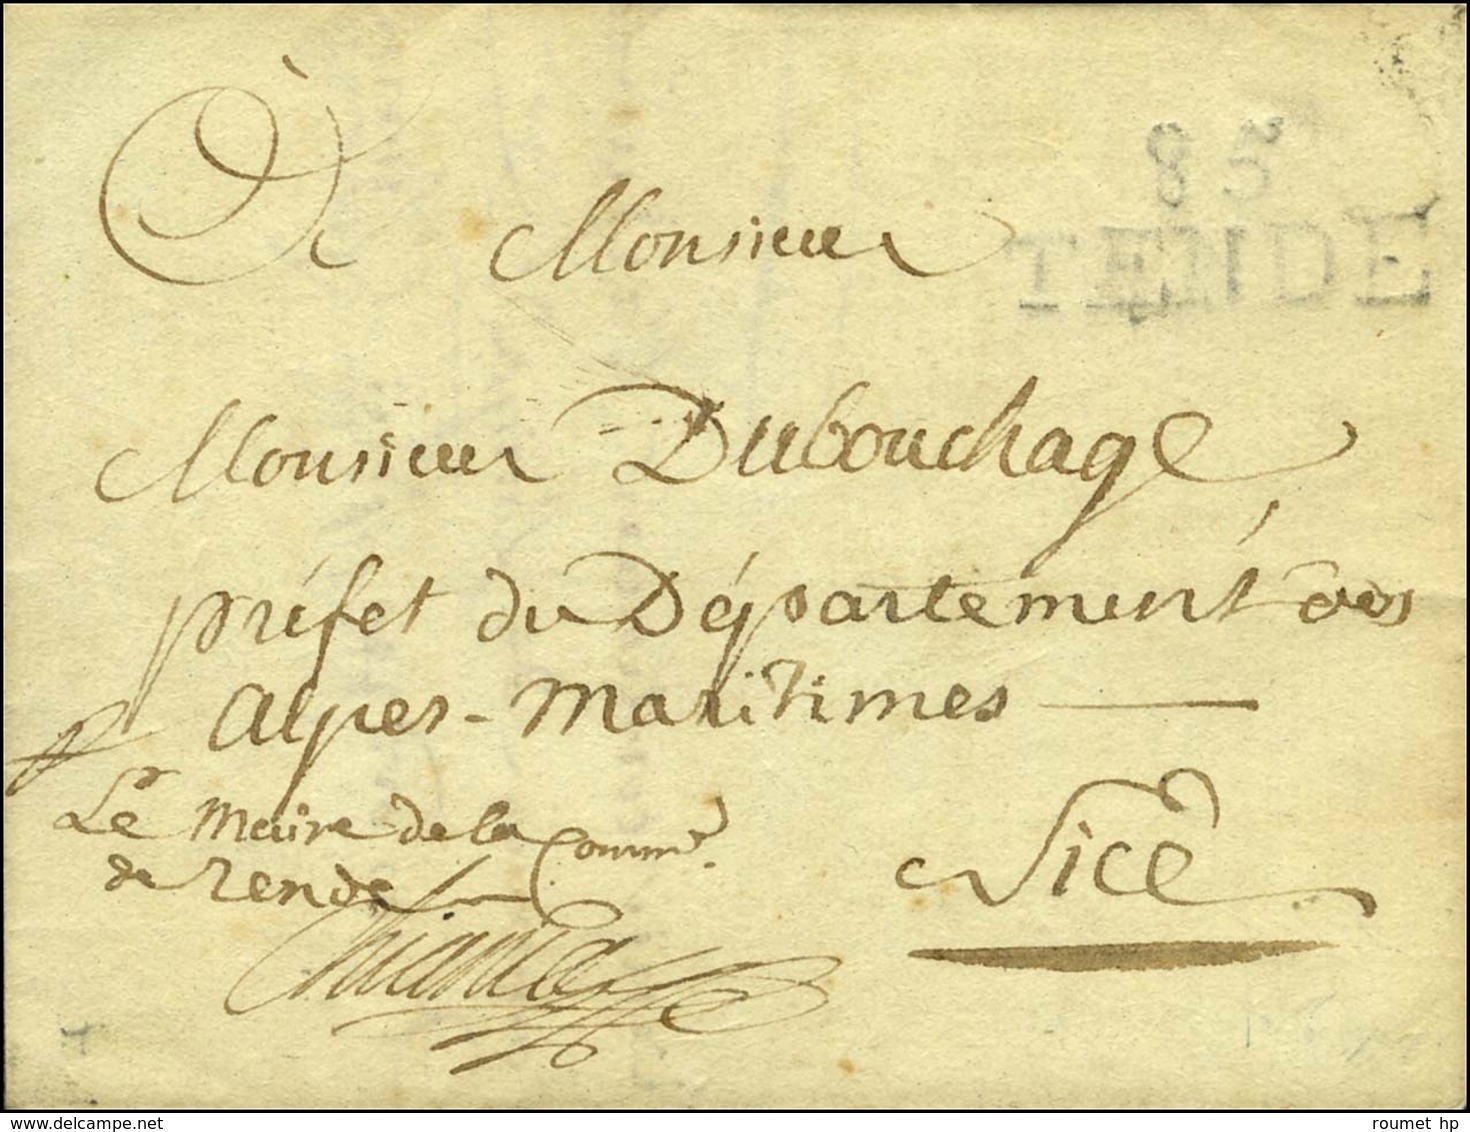 A Monsieur
85
TENDE
Monsieur Dubouchage
préfet du Département des
Alpes-Maritimes
Le Maire de la Comm.e
de Tende
Nice
roumet hp